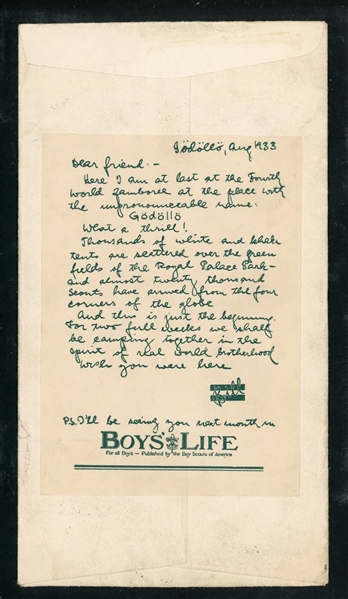 Gödöllö, Aug 1933
Dear friend:-
Here I am at last at the Fourth
World Jamboree at the place with
the unpronounceable name.
Gödöllö
What a thrill!
Thousands of white and khaki
tents are scattered over the green
fields of the Royal Palace Park—
and almost twenty thousand
Scouts have arrived from the four
corners of the globe
And this is just the beginning.
For two full weeks we shall
be camping together in the
spirit of real world brotherhood
Wish you were here
Bill
PS. I'll be seeing you next month in
BOYS' LIFE
For all Boys — Published by the Boy Scouts of America